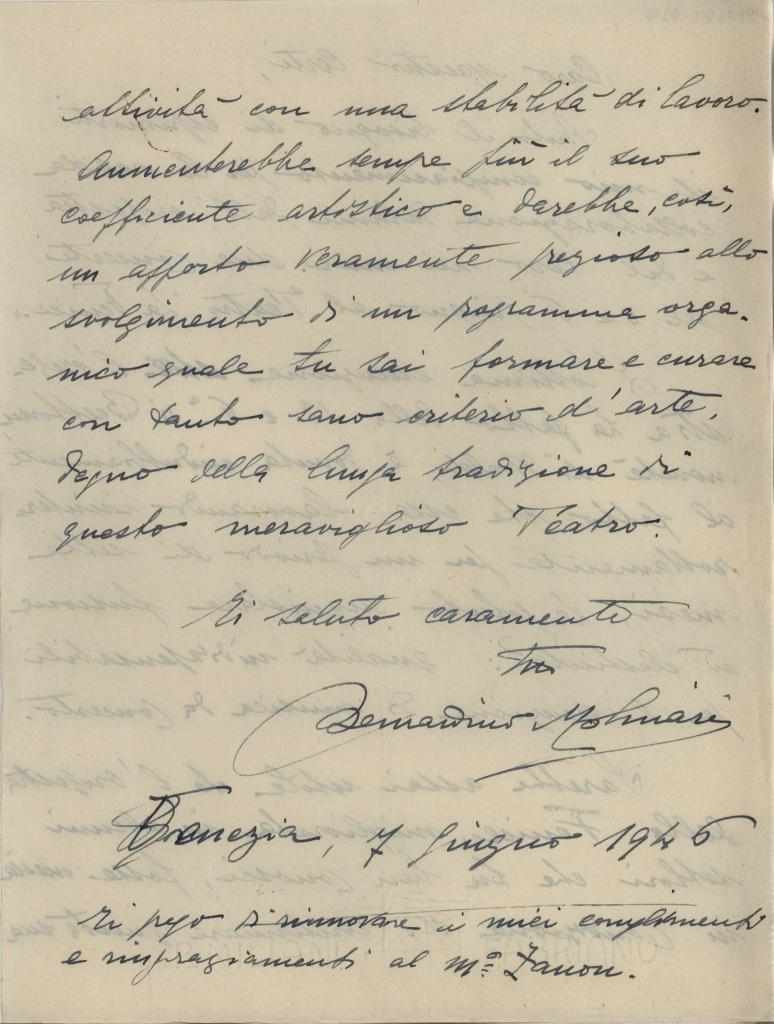 attività con una stabilità di lavoro.
Aumenterebbe sempre più il suo
coefficiente artistico e darebbe, così,
un apporto veramente prezioso allo
svolgimento di un programma orga-
nico quale tu sai formare e curare
con tanto sano criterio d'arte,
degno della lunga tradizione di
questo meraviglioso Teatro.
Ti saluto caramente
tuo
Bernardino Molinari
Venezia, 7 giugno 1946
Ti prego di rinnovare i miei complimenti
e ringraziamenti al Mº Zanon.